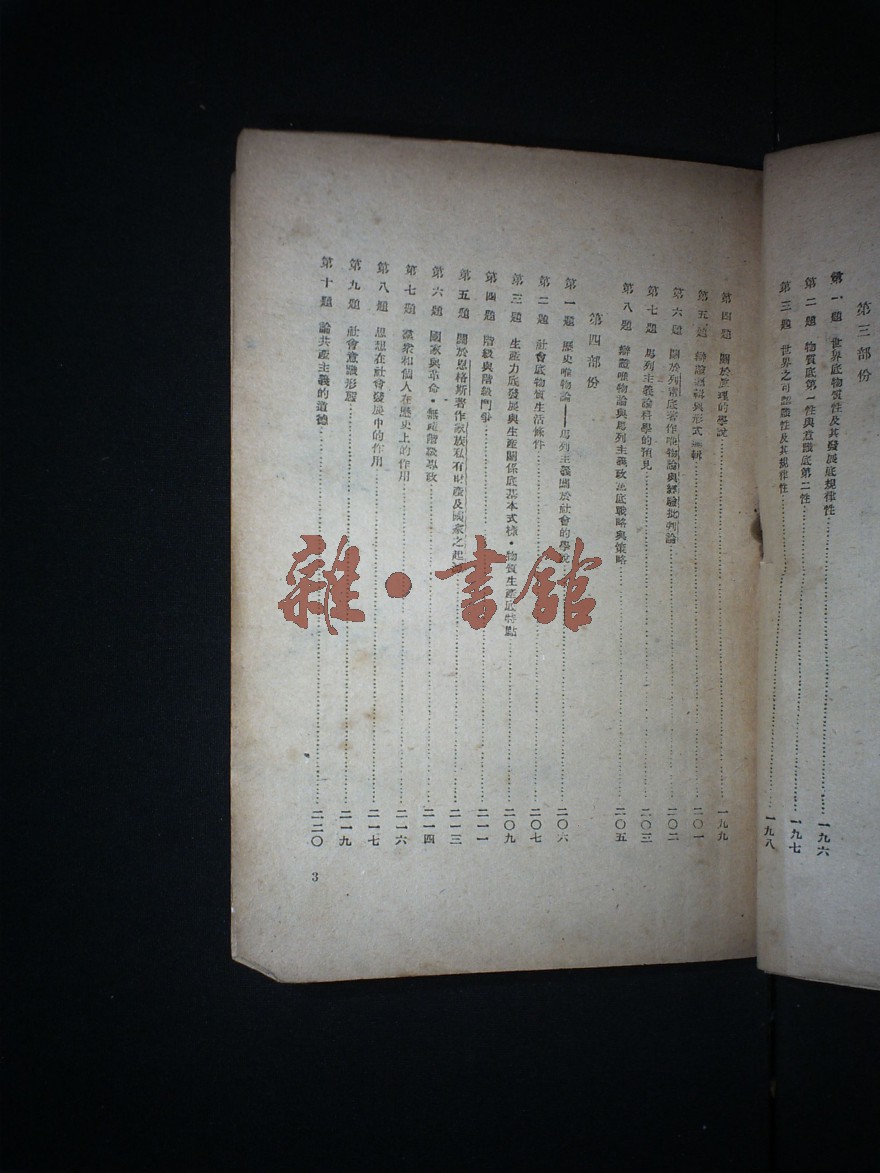 第三部份
第一題 世界底物質性及其發展底規律性 一九六
第二題 物質底第一性與意識底第二性 一九七
第三題 世界之可認識性及其規律性 一九八
第四題 關於真理的學說 一九九
第五題 辯證邏輯與形式邏輯 二〇一
第六題 關於列寧底著作唯物論與經驗批判論 二〇二
第七題 馬列主義論科學的預見 二〇三
第八題 辯證唯物論與馬列主義政黨底戰略與策略 二〇五
第四部份
第一題 歷史唯物論——馬列主義關於社會的學說 二〇六
第二題 社會底物質生活條件 二〇七
第三題 生產力底發展與生產關係底基本式樣・物質生產底特點 二〇九
第四題 階級與階級鬥爭 二一一
第五題 關於恩格斯著作家族私有財產及國家之起源 二一三
第六題 國家與革命・無產階級專政 二一四
第七題 羣衆和個人在歷史上的作用 二一六
第八題 思想在社會發展中的作用 二一七
第九題 社會意識形態 二一九
第十題 論共產主義的道德 二二〇
3
雜・書館